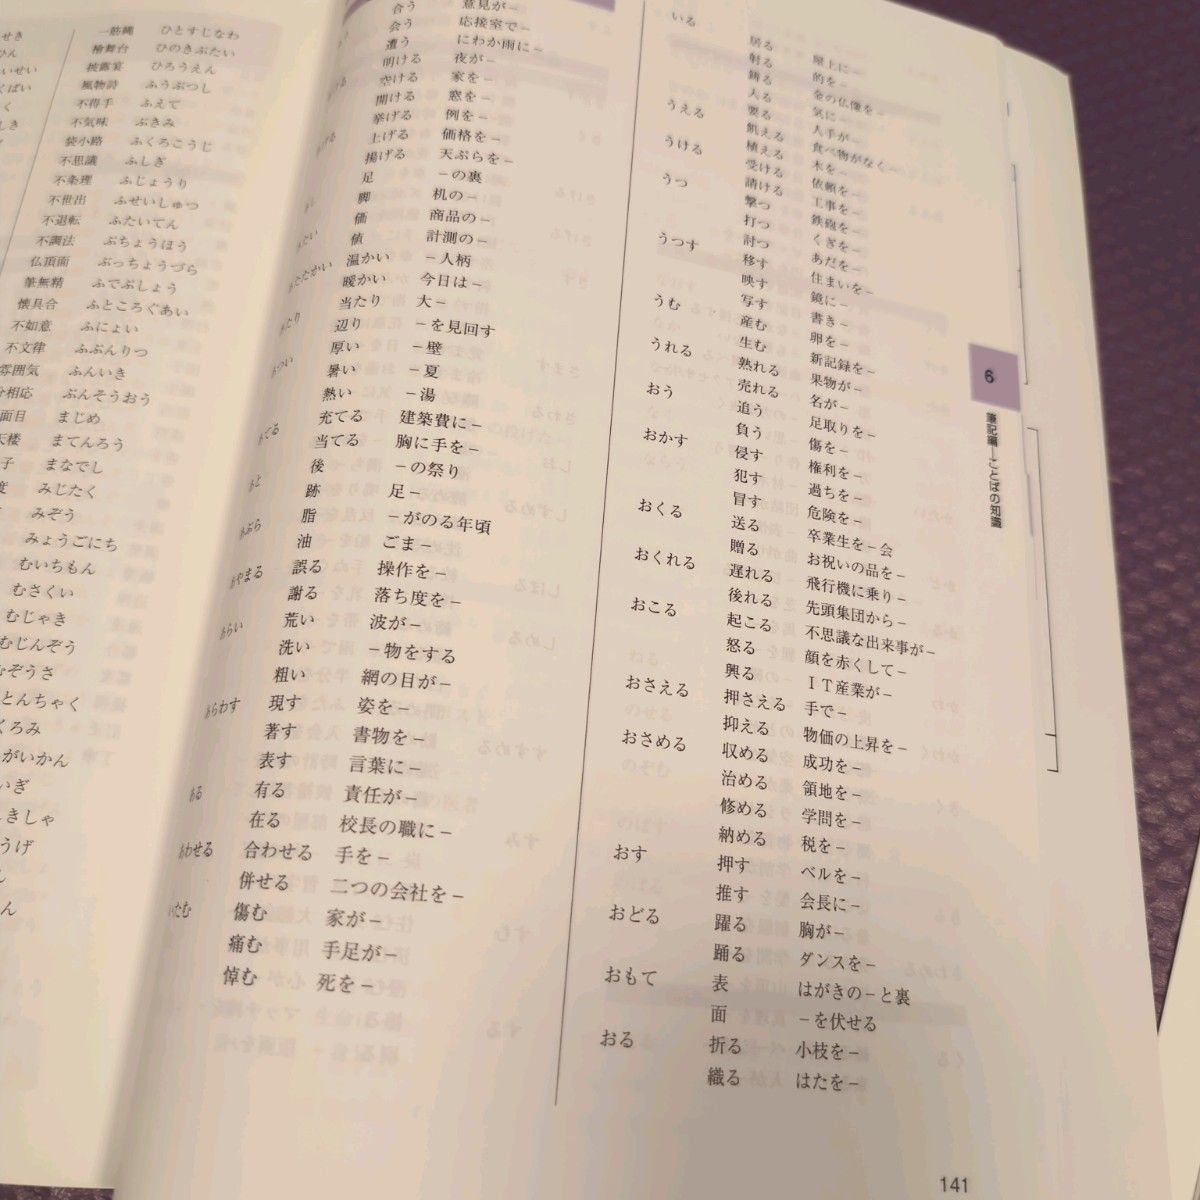 一筋縄 ひとすじなわ
檜舞台 ひのきぶたい
披露宴 ひろうえん
風物詩 ふうぶつし
不得手 ふえて
不気味 ぶきみ
袋小路 ふくろこうじ
不思議 ふしぎ
不条理 ふじょうり
不世出 ふせいしゅつ
不退転 ふたいてん
不調法 ぶちょうほう
仏頂面 ぶっちょうづら
筆無精 ふでぶしょう
懐具合 ふところぐあい
不如意 ふにょい
不文律 ふぶんりつ
雰囲気 ふんいき
分相応 ぶんそうおう
面目 まじめ
天楼 まてんろう
子 まなでし
度 みじたく
みぞう
みょうごにち
むいちもん
むさくい
むじゃき
むじんぞう
むぞうさ
とんちゃく
くろみ
がいかん
いぎ
きしゃ
うげ
ん
合う 意見が−
会う 応接室で−
遭う にわか雨に−
明ける 夜が−
空ける 家を−
開ける 窓を−
挙げる 例を−
上げる 価格を−
揚げる 天ぷらを−
足 −の裏
脚 机の−
価 商品の−
値 計測の−
あたたかい 温かい −人柄
暖かい 今日は−
あたり 当たり 大−
辺り −を見回す
あつい 厚い −壁
暑い −夏
熱い −湯
あてる 充てる 建築費に−
当てる 胸に手を−
あと 後 −の祭り
跡 足−
あぶら 脂 −がのる年頃
油 ごま−
あやまる 誤る 操作を−
謝る 落ち度を−
あらい 荒い 波が−
洗い −物をする
粗い 網の目が−
あらわす 現す 姿を−
著す 書物を−
表す 言葉に−
ある 有る 責任が−
在る 校長の職に−
あわせる 合わせる 手を−
併せる 二つの会社を−
いたむ 傷む 家が−
痛む 手足が−
悼む 死を−
いる 居る 屋上に−
射る 的を−
鋳る 金の仏像を−
入る 気に−
要る 人手が−
うえる 飢える 食べ物がなく−
植える 木を−
うける 受ける 依頼を−
請ける 工事を−
うつ 撃つ 鉄砲を−
打つ くぎを−
討つ あだを−
うつす 移す 住まいを−
映す 鏡に−
写す 書き−
うむ 産む 卵を−
生む 新記録を−
うれる 熟れる 果物が−
売れる 名が−
おう 追う 足取りを−
負う 傷を−
おかす 侵す 権利を−
犯す 過ちを−
冒す 危険を−
おくる 送る 卒業生を−会
贈る お祝いの品を−
おくれる 遅れる 飛行機に乗り−
後れる 先頭集団から−
おこる 起こる 不思議な出来事が−
怒る 顔を赤くして−
興る ＩＴ産業が−
おさえる 押さえる 手で−
抑える 物価の上昇を−
おさめる 収める 成功を−
治める 領地を−
修める 学問を−
納める 税を−
おす 押す ベルを−
推す 会長に−
おどる 躍る 胸が−
踊る ダンスを−
おもて 表 はがきの−と裏
面 −を伏せる
おる 折る 小枝を−
織る はたを−
6
筆記編―ことばの知識
141